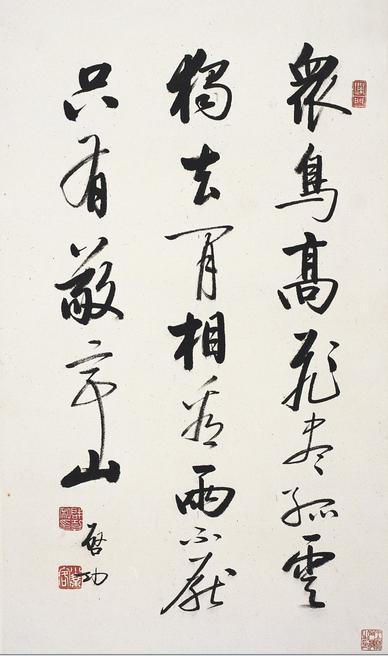 衆鳥高飛尽孤雲
獨去閒相看兩不厭
只有敬亭山
啓功